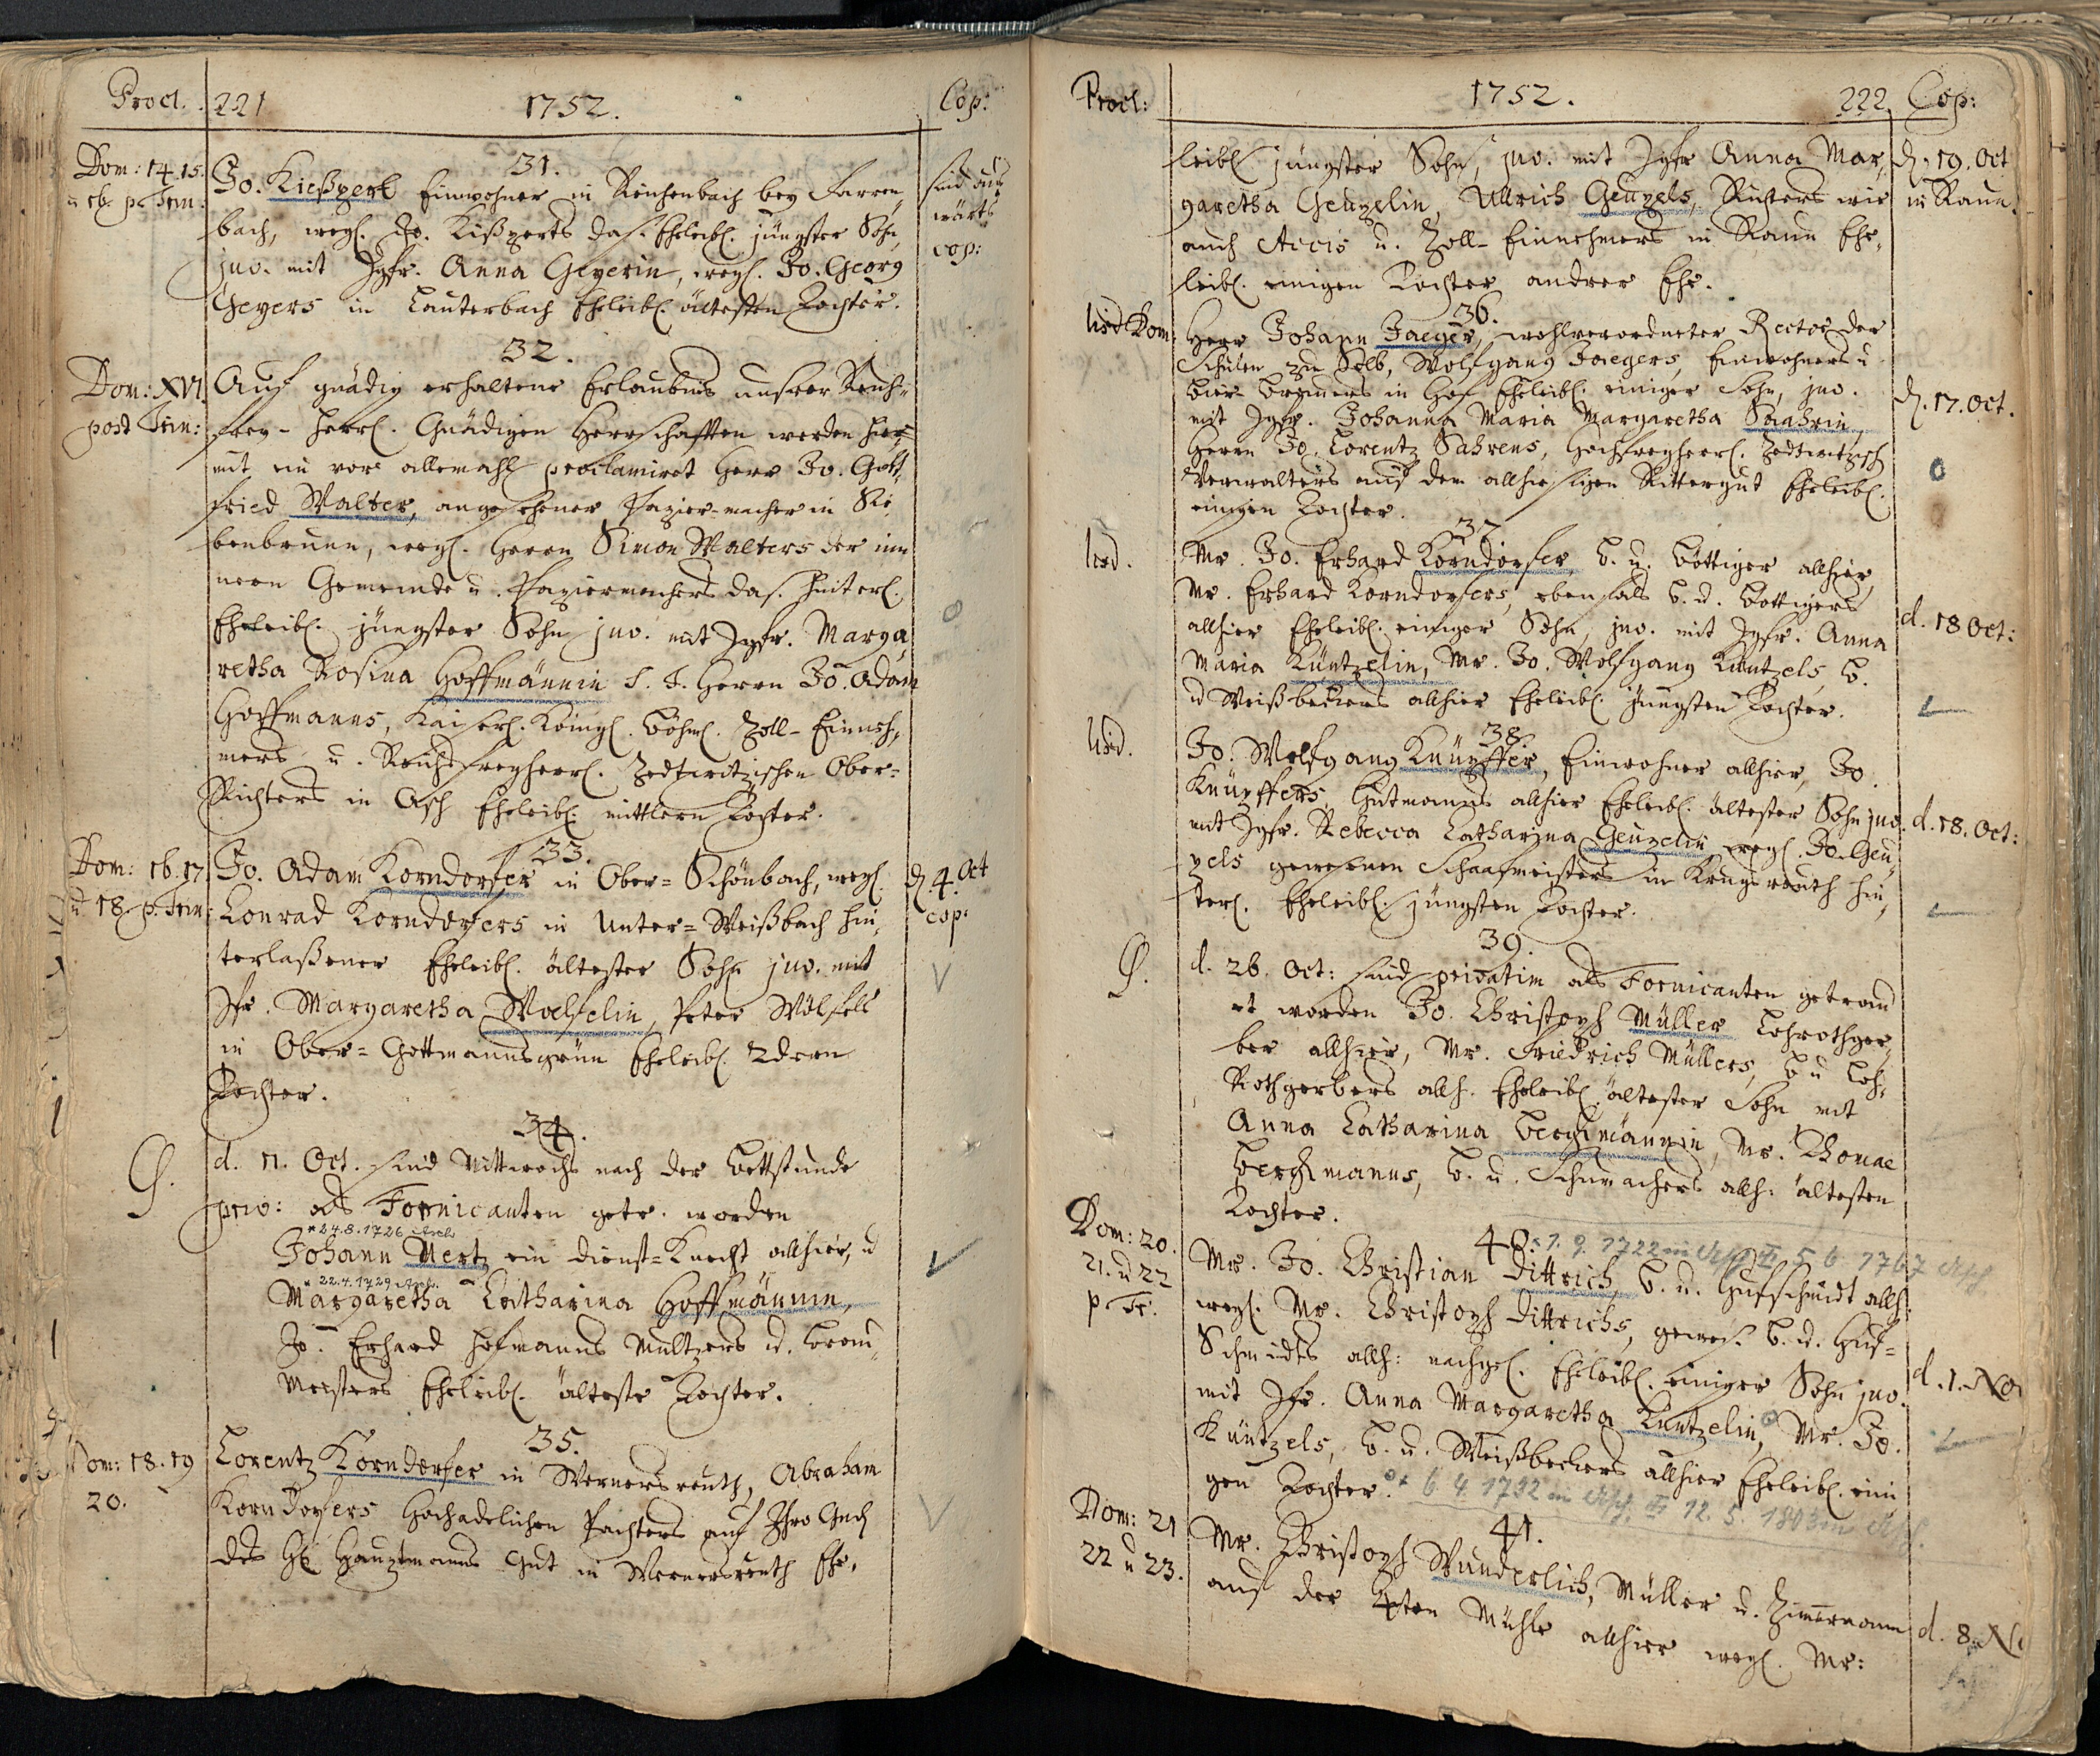 Procl. 221 1752. Cop:
31.
Dom: 14. 15.
u 16. p. Trin:
Jo. Kießperl Einwohner in Reichenbach bey Farren-
bach, wegl. Jo. Kißperls das. Eheleibl. jüngster Sohn
juv. mit Jgfr. Anna Geyerin, wegl. Jo. Georg
Geyers in Lauterbach Eheleibl. ältesten Tochter.
sind aus
wärts
cop:
32.
Dom: XVI
post Trin:
Auf gnädig erhaltene Erlaubnis unserer Reichs-
frey-Herrl. Gnädigen Herrschafften werden hier-
mit ein vor allemahl proclamiret Herr Jo. Gott-
fried Walter, angesehener Papier-macher in Sie-
benbrunn, wegl. Herrn Simon Walters der in
nern Gemeinde u. Papiermachers das. hinterl.
Eheleibl. jüngster Sohn juv. mit Jgfr. Marga-
retha Rosina Hoffmännin S. T. Herrn Jo. Adam
Hoffmanns, Kaiserl. Königl. Böhml. Zoll-Einneh-
mers u. Reichsfreyherrl. Zedtwitzischen Ober-
Richters in Asch Eheleibl. mittlern Tochter.
33.
Dom: 16. 17.
u. 18. p. Trin:
Jo. Adam Korndorfer in Ober-Schönbach, wegl.
Conrad Korndorfers in Unter-Weißbach hin-
terlaßener Eheleibl. ältester Sohn juv. mit
Jfr. Margaretha Woelfelin, Peter Wölfels
in Ober-Gottmannsgrün Eheleibl. 2dern
Tochter.
d. 4. Oct
cop:
34.
d. 11. Oct. sind Mittwochs nach der Bettstunde
priv: als Fornicanten getr. worden
* 24.8.1726 Asch
Johann Merz ein Dienst-Knecht allhier, u
* 22.4.1729 Asch.
Margaretha Catharina Hoffmännin,
Jo. Erhard Hofmanns Multzers u. Brau-
Meisters Eheleibl. älteste Tochter.
35.
Dom: 18. 19
20.
Lorentz Korndorfer in Wernersreuth, Abraham
Korndorfers Hochadelichen Pachters auf Ihro Gnd
des H. Hauptmanns Gut in Wernersreuth Ehe-
Procl: 1752. 222. Cop:
leibl jüngster Sohn, juv. mit Jgfr Anna Mar-
garetha Geupelin, Ullrich Geupels, Richters wie
auch Accis u. Zoll-Einnehmers in Raun Ehe-
leibl. einigen Tochter andrer Ehe.
d. 19. Oct
in Raun.
36.
iisd Dom:
Herr Johann Jaeger, wohlverordneter Rector der
Schulen zu Selb, Wolfgang Jaegers, Einwohners u
Bier-Brauers in Hof Eheleibl. einiger Sohn, juv.
mit Jgfr. Johanna Maria Margaretha Saahrin,
Herrn Jo. Lorentz Sahrens, Hochfreyherrl. Zedtwitzisch
Verwalters auf dem allhiesigen Rittergut Eheleibl.
einigen Tochter.
d. 17. Oct.
37.
iisd.
Mr. Jo. Erhard Korndorfer, B. u. Böttiger allhier,
Mr. Erhard Korndorfers, ebenfals B. u. Bottigers
allhier Eheleibl. einiger Sohn, juv. mit Jgfr. Anna
Maria Küntzelin, Mr. Jo. Wolfgang Küntzels, B.
u Weißbeckers allhier Eheleibl. jüngsten Tochter.
d. 18 Oct:
38.
iisd.
Jo. Wolfgang Knüpffer, Einwohner allhier, Jo.
Knüpffers, Hutmanns allhier Eheleibl. ältester Sohn juv.
mit Jgfr. Rebecca Catharina Geupelin, wegl. Jo. Geu-
pels gewesenen Schaafmeisters in Krugsreuth hin-
terl. Eheleibl. jüngsten Tochter.
d. 18. Oct:
39.
d. 26. Oct: sind privatim als Fornicanten getrau
et worden Jo. Christoph Müller Lohrothger-
ber allhier, Mr. Friedrich Müllers, B u Loh-
Rothgerbers allh. Eheleibl. ältester Sohn mit
Anna Catharina Bergkmännin, Mr. Thomae
Bergkmanns, B. u. Schumachers allh. ältesten
Tochter.
40. * 1. 9. 1722 in Asch 5 6 1767 Asch
Dom: 20.
21. u 22
p. Tr.
Mr. Jo. Christian Dittrich, B. u. Hufschmidt allh.
wegl. Mr. Christoph Dittrichs, gewes. B. u. Huf-
Schmidts allh: nachgel. Eheleibl. einiger Sohn juv.
mit Jfr. Anna Margaretha Küntzelin, Mr. Jo.
Küntzels, B. u. Weißbeckers allhier Eheleibl. eini
gen Tochter. * 6. 4. 1732 in Asch, 12. 5. 1803 in Asch.
d. 1. No
41.
Dom: 21
22 u 23.
Mr. Christoph Wunderlich, Müller u. Zimmermann
auf der 4ten Mühle allhier wegl. Mr:
d. 8. No